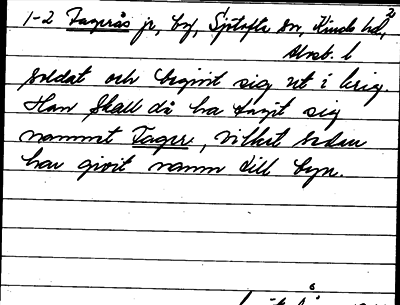 1-2 Tagerås jr, by, Sjötofta sn, Kinds hd, 2)
Älvsb. l
soldat och begivit sig ut i krig.
Han skall då ha tagit sig
namnet Tager, vilket sedan
har givit namn till byn.